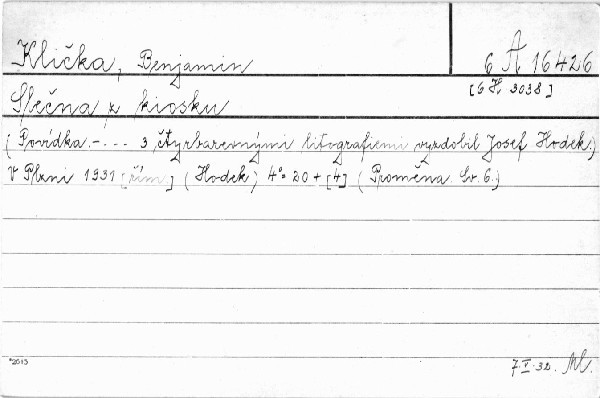 Klička, Benjamin 6 A 16426
[6 H. 3038]
Slečna z kiosku
(Povídka.-... 3 čtyrbarevnými litografiemi vyzdobil Josef Hodek.)
V Plzni 1931 [řím.] (Hodek) 4° 20 + [4] (Proměna. Sv. 6.)
7.V.32. Ml.
*2615